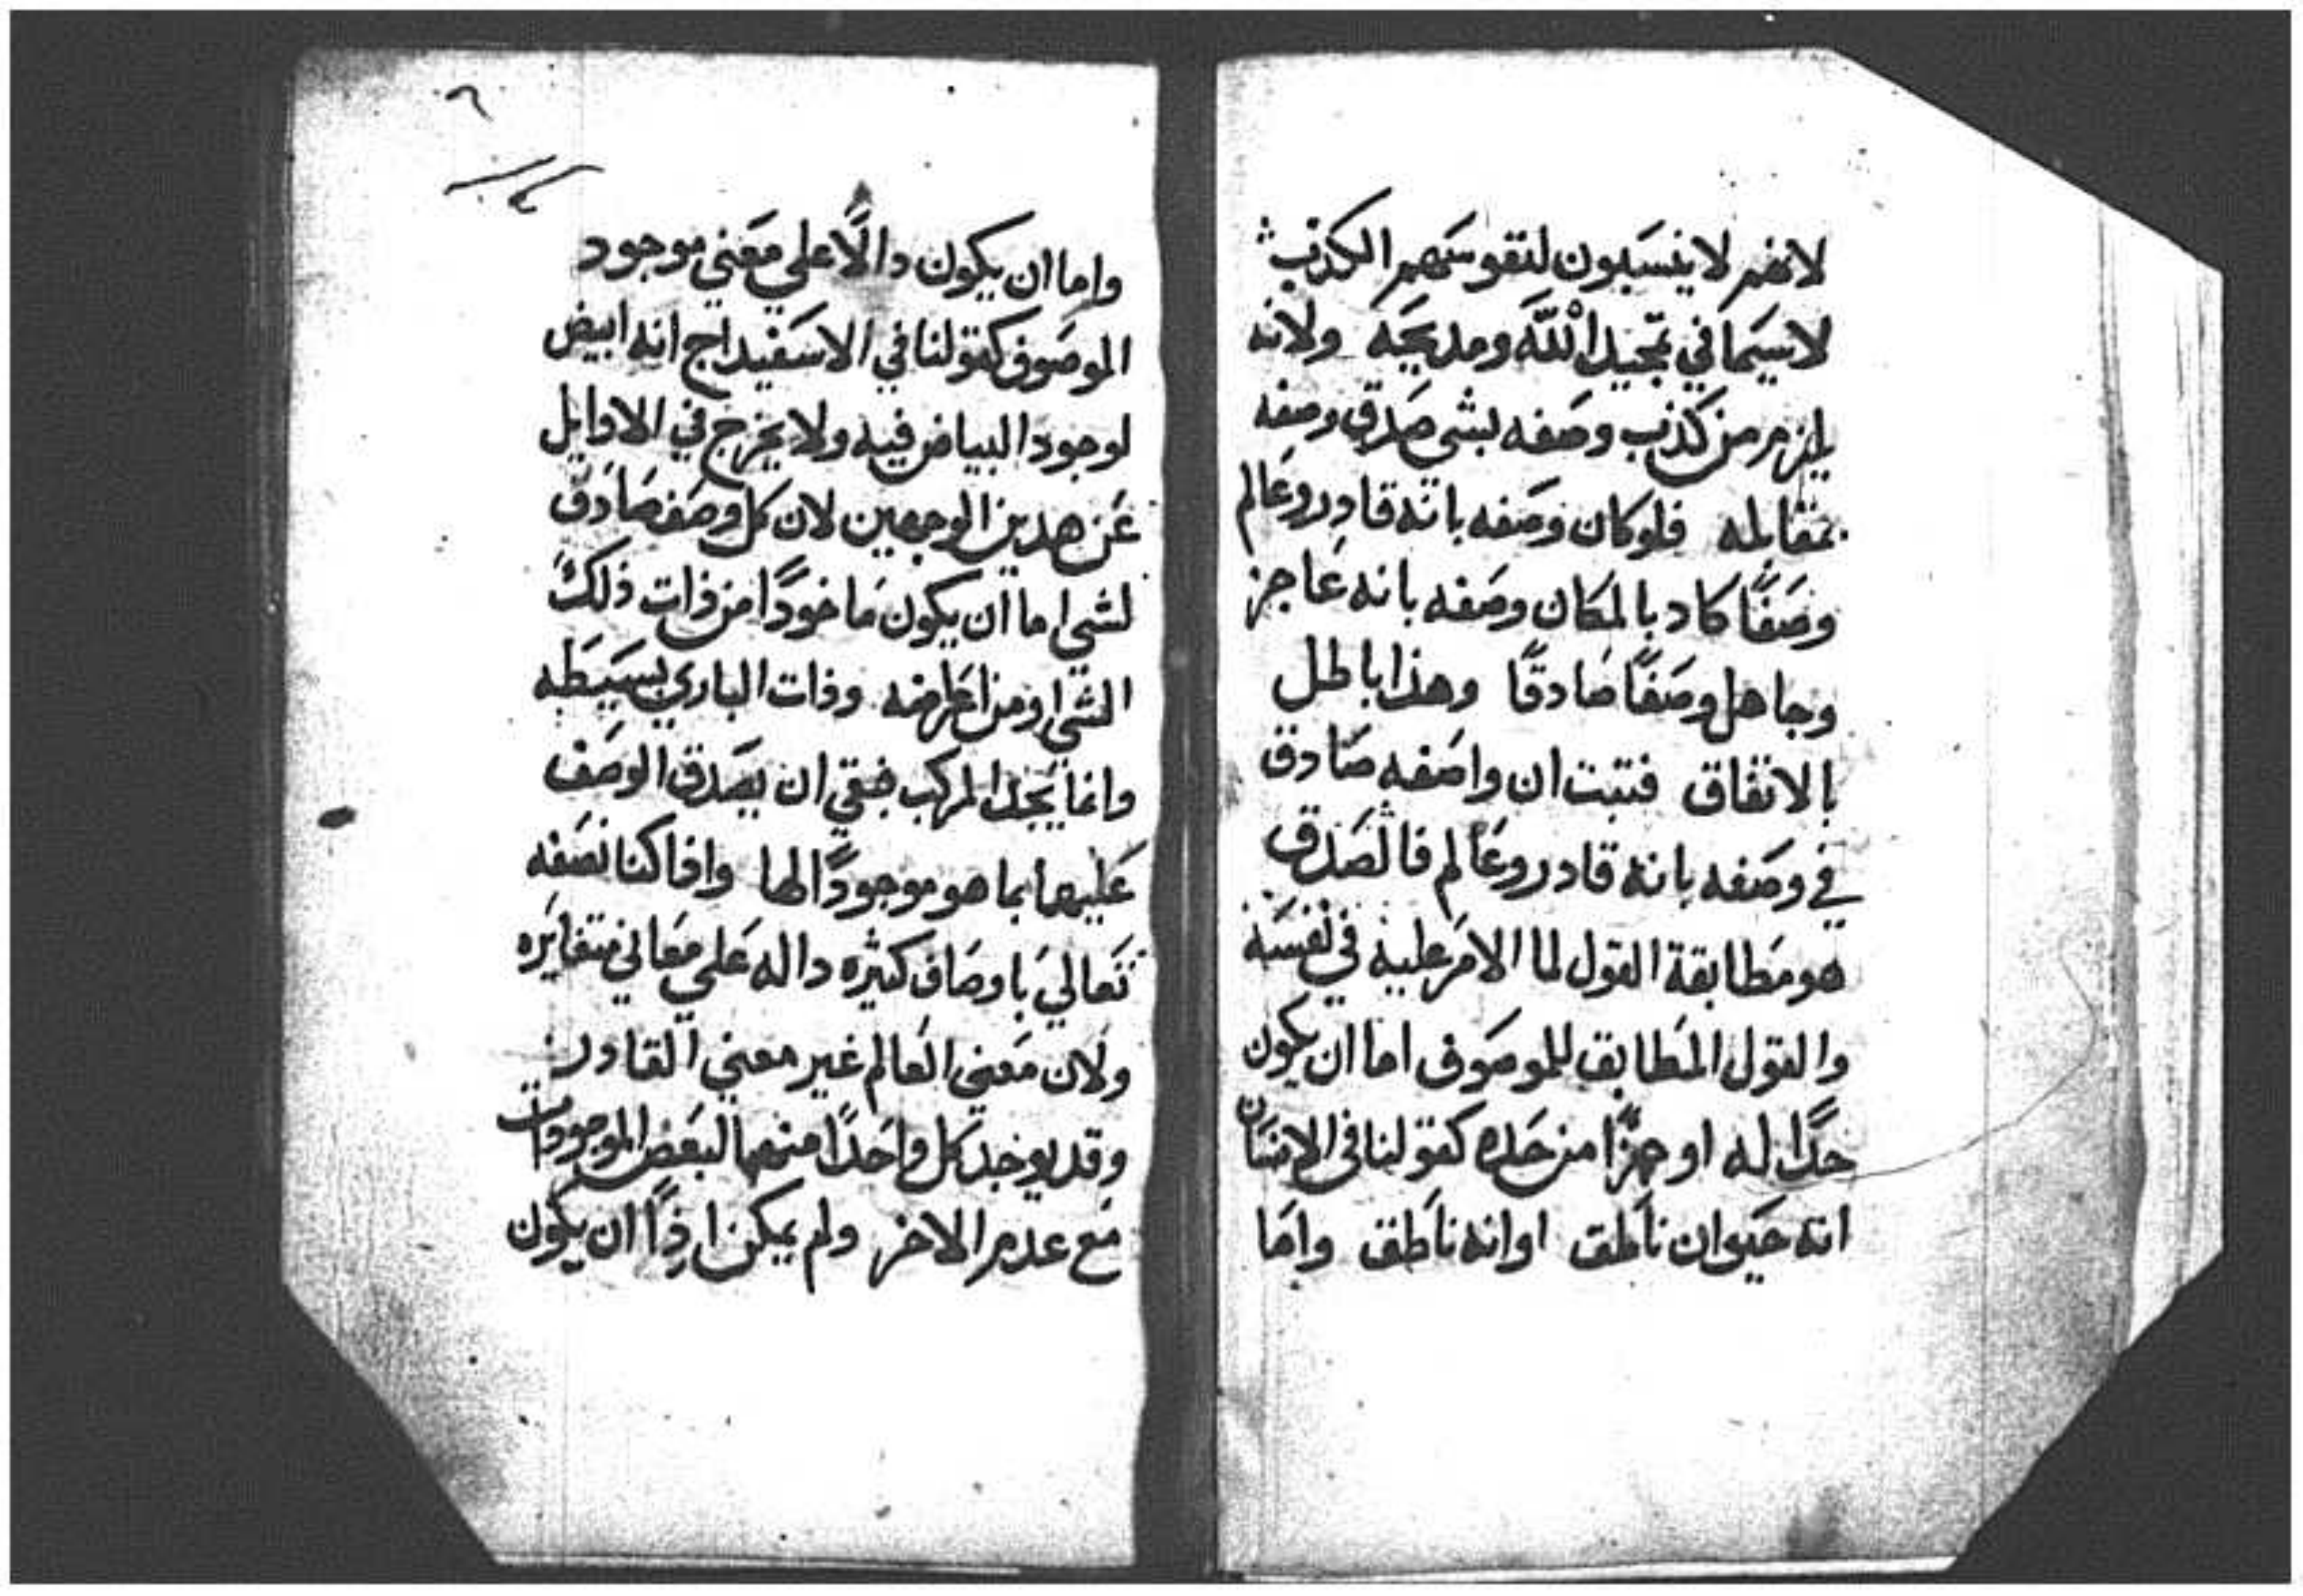 لانهم لا ينسبون لنفوسهم الكذب
لا سيما في تمجيد الله ومديحه ولانه
يلزم من كذب وصفه بشي صدق وصفه
بمقابله فلو كان وصفه بانه قادر وعالم
وصفًا كادبا لمكان وصفه بانه عاجز
وجاهل وصفًا صادقًا وهذا باطل
بالاتفاق فتبت ان واصفه صادق
في وصفه بانه قادر وعالم فالصدق
هو مطابقة القول لما الامر عليه في نفسه
والقول المطابق للموصوف اما ان يكون
حدًا له او جزًا من حده كقولنا في الانسان
انه حيوان ناطق او انه ناطق واما
٦
واما ان يكون دالًا علي معني موجود
الموصوف كقولنا في الاسفيداج انه ابيض
لوجود البياض فيه ولا يخرج في الاوايل
عن هدين الوجهين لان كل وصف صادق
لشي اما ان يكون ماخودًا من ذات ذلك
الشي او من اعراضه وذات الباري بسيطه
وانما يحد المركب فبقي ان يصدق الوصف
عليها بما هو موجودًا لها واذا كنا نصفه
تعالي باوصاف كثيره داله علي معاني متغايره
ولان معني العالم غير معني القادر
وقد يوجد كل واحدًا منهما لبعض الموجودات
مع عدم الاخر ولم يمكن اذًا ان يكون